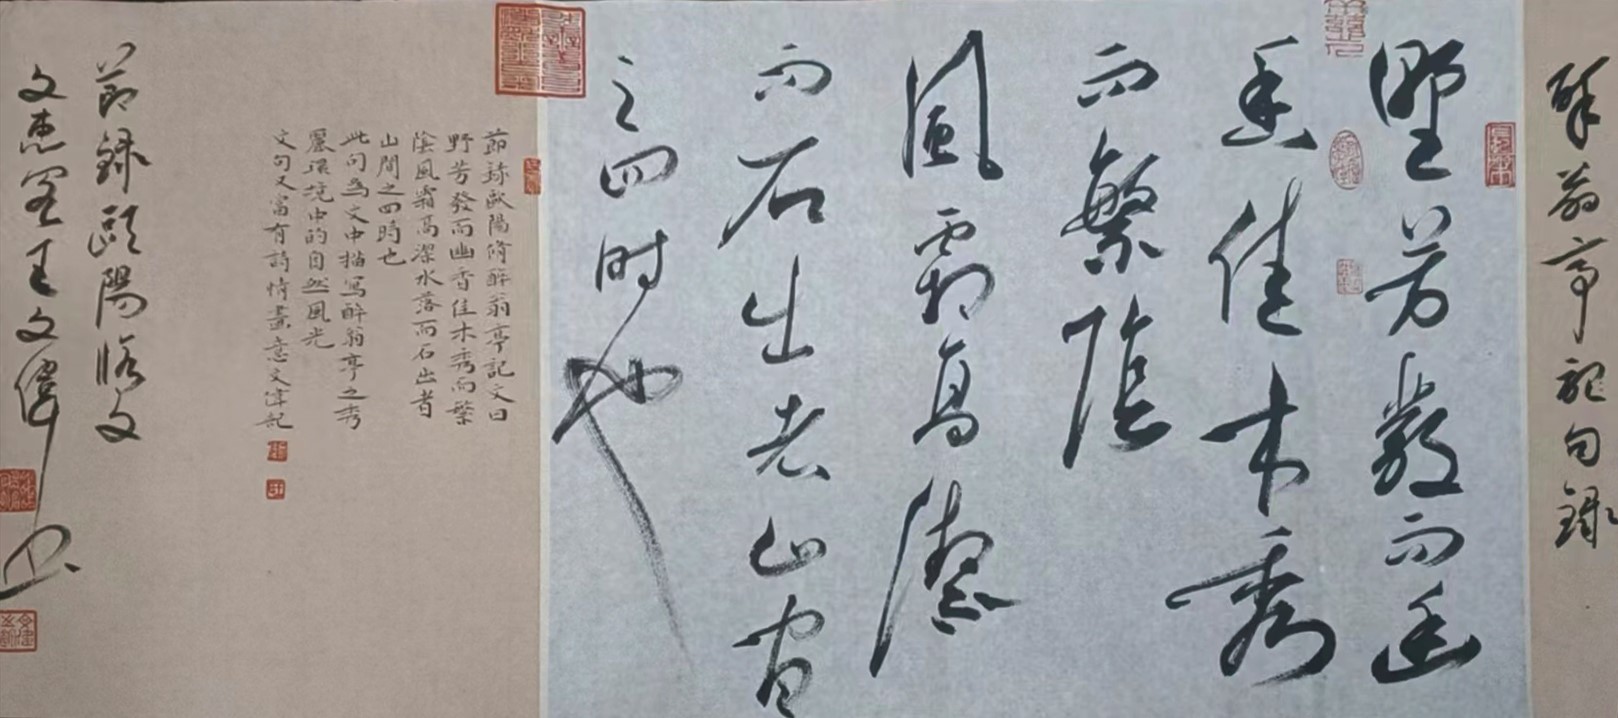 醉翁亭記句錄
野芳發而幽
香佳木秀
而繁陰
風霜高潔
而石出者山間
之四时也
節錄歐陽脩醉翁亭記文曰
野芳發而幽香佳木秀而繁
陰風霜高潔水落而石出者
山間之四時也
此句為文中描寫醉翁亭之秀
麗環境中的自然風光
文句又富有詩情畫意文偉記
節錄歐陽脩文
文惠王文偉书